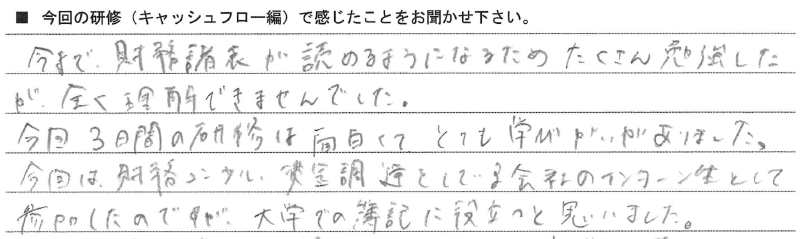 ■ 今回の研修（キャッシュフロー編）で感じたことをお聞かせ下さい。
今まで、財務諸表が読めるようになるためたくさん勉強した
が、全く理解できませんでした。
今回3日間の研修は面白くてとても学びがいがありました。
今回は、財務コンサル、資金調達をしている会社のインターン生として
参加したのですが、大学での簿記に役立つと思いました。